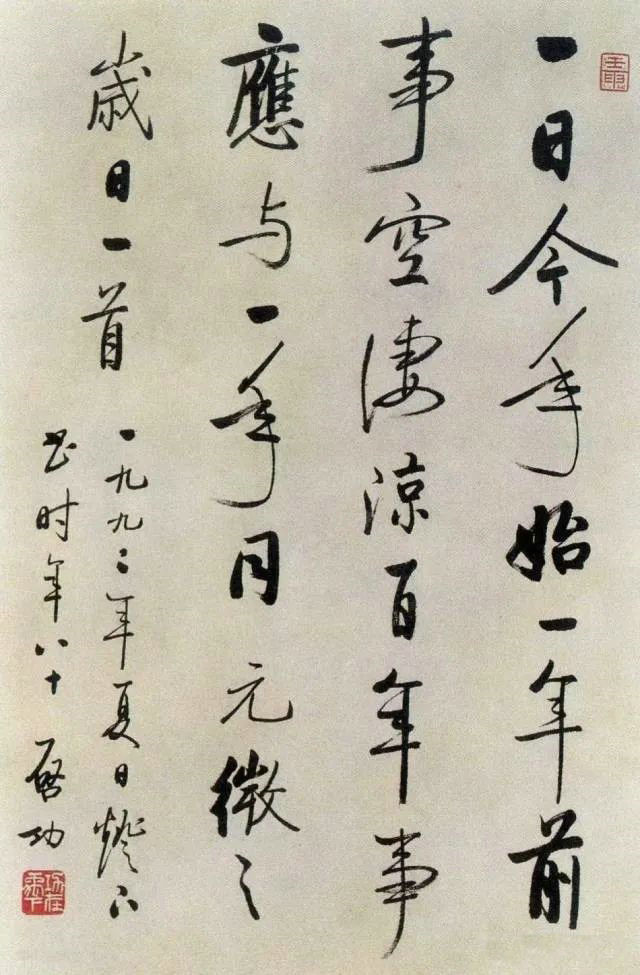 一日今年始一年前
事空淒涼百年事
應与一年同 元微之
歲日一首
一九九二年夏日燈下
书时年八十 启功